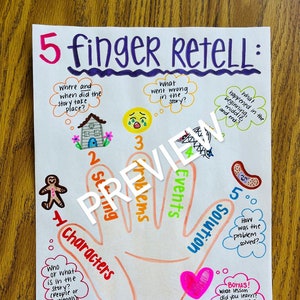 5 finger Retell:
Where and
when did the
story take
place?
What
went wrong
in the
story?
What
happened in the
beginning,
middle,
end?
PREVIEW
1 Characters
2 Setting
3 Problems
4 Events
5 Solution
Who
or what
is in the
story?
(People or
How
was the
problem
solved?
BONUS!
What lesson
did you learn?